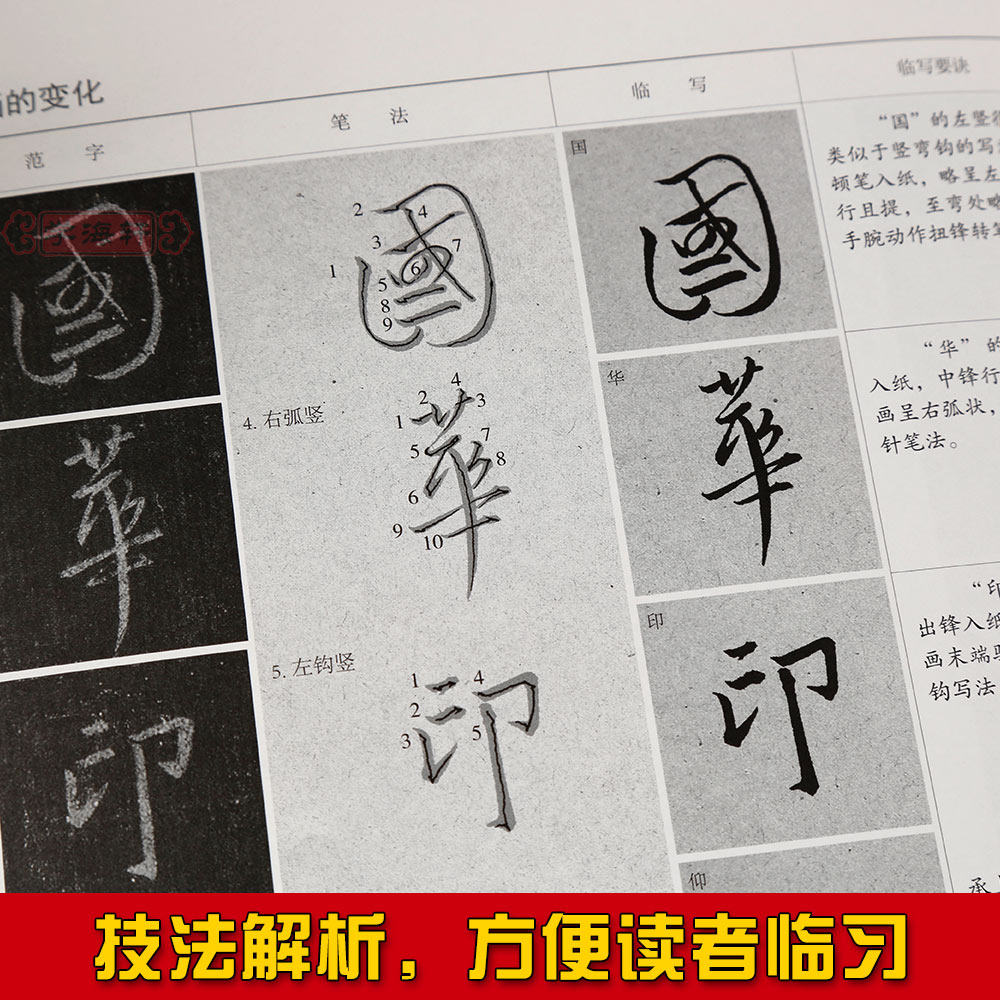 的变化
范 字
笔 法
临 写
临写要诀
國
2
4
3
7
1
6
5
8
9
国
國
“国”的左竖
类似于竖弯钩的写
顿笔入纸，略呈左
行且提，至弯处略
手腕动作扭锋转笔
華
4. 右弧竖
4
2
3
1
7
5
8
6
9
10
華
华
華
“华”的
入纸，中锋行
画呈右弧状，
针笔法。
印
5. 左钩竖
1
4
2
3
5
印
印
印
“印
出锋入纸
画末端
钩写法
仰
承
技法解析，方便读者临习